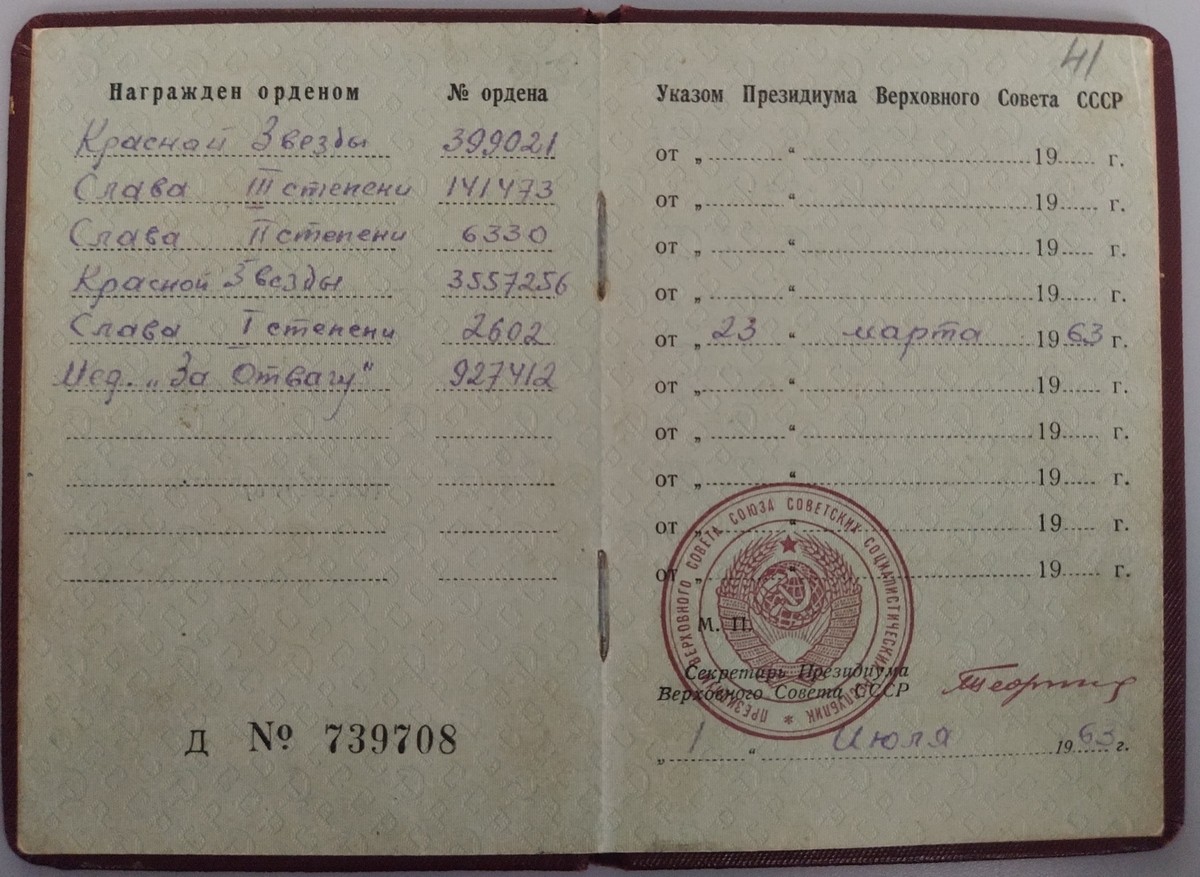 Награжден орденом № ордена
Красной Звезды 399021
Слава III степени 141473
Слава II степени 6330
Красной Звезды 3557256
Слава I степени 2602
Мед. „За Отвагу" 927412
Д № 739708
41
Указом Президиума Верховного Совета СССР
от „ “ 19 г.
от „ “ 19 г.
от „ “ 19 г.
от „ “ 19 г.
от „ 23 “ марта 19 63 г.
от „ “ 19 г.
от „ “ 19 г.
от „ “ 19 г.
от „ “ 19 г.
от „ “ 19 г.
ПРЕЗИДИУМ ВЕРХОВНОГО СОВЕТА СОЮЗА СОВЕТСКИХ СОЦИАЛИСТИЧЕСКИХ РЕСПУБЛИК
М. П.
Секретарь Президиума
Верховного Совета СССР
„ 1 “ Июля 19 63 г.